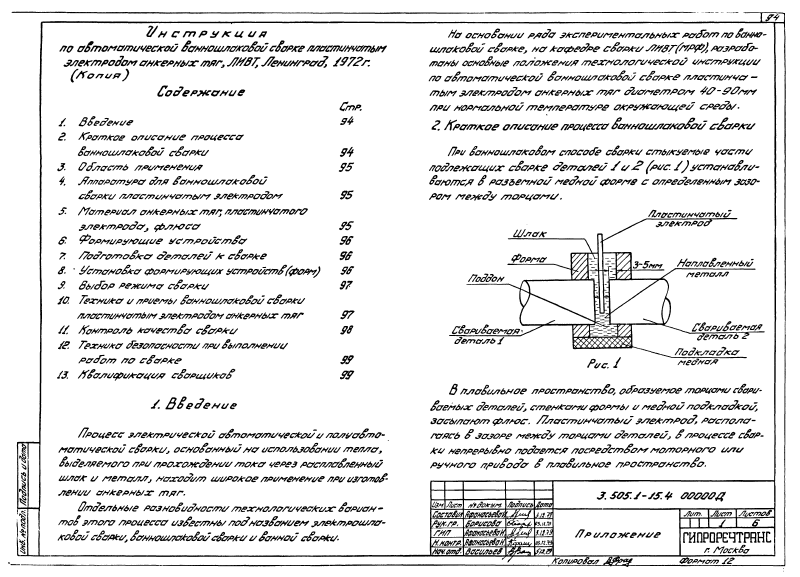 94
Инструкция
по автоматической ванношлаковой сварке пластинчатым
электродом анкерных тяг, ЛИВТ, Ленинград, 1972г.
(Копия)
Содержание
Стр.
1. Введение 94
2. Краткое описание процесса
ванношлаковой сварки 94
3. Область применения 95
4. Аппаратура для ванношлаковой
сварки пластинчатым электродом 95
5. Материал анкерных тяг, пластинчатого
электрода, флюса 95
6. Формирующие устройства 96
7. Подготовка деталей к сварке 96
8. Установка формирующих устройств (форм) 96
9. Выбор режима сварки 97
10. Техника и приемы ванношлаковой сварки
пластинчатым электродом анкерных тяг 97
11. Контроль качества сварки 98
12. Техника безопасности при выполнении
работ по сварке 99
13. Квалификация сварщиков 99
1. Введение
Процесс электрической автоматической и полуавто-
матической сварки, основанный на использовании тепла,
выделяемого при прохождении тока через расплавленный
шлак и металл, находит широкое применение при изготов-
лении анкерных тяг.
Отдельные разновидности технологических вариан-
тов этого процесса известны под названием электрошла-
ковой сварки, ванношлаковой сварки и ванной сварки.
На основании ряда экспериментальных работ по ванно-
шлаковой сварке, на кафедре сварки ЛИВТ (МРФ), разрабо-
таны основные положения технологической инструкции
по автоматической ванношлаковой сварке пластинча-
тым электродом анкерных тяг диаметром 40-90мм
при нормальной температуре окружающей среды.
2. Краткое описание процесса ванношлаковой сварки
При ванношлаковом способе сварки стыкуемые части
подлежащих сварке деталей 1 и 2 (рис. 1) устанавли-
ваются в разъемной медной форме с определенным зазо-
ром между торцами.
Пластинчатый
электрод
Шлак
Форма
3-5мм
Наплавленный
металл
Поддон
Свариваемая
деталь 1
Свариваемая
деталь 2
Подкладка
медная
Рис. 1
В плавильное пространство, образуемое торцами свари-
ваемых деталей, стенками формы и медной подкладкой,
засыпают флюс. Пластинчатый электрод, распола-
гаясь в зазоре между торцами деталей, в процессе свар-
ки непрерывно подается посредством моторного или
ручного привода в плавильное пространство.
Инв. № подл. Подпись и дата
3.505.1-15.4 00000Д
Изм Лист № докум. Подпись Дата
Составил Афанасьева Н.
Рук. гр. Борисова
ГИП Афанасьева Н.
Н. контр. Афанасьева Н.
Нач. отд. Васильев
Приложение
Лит. Лист Листов
1 6
ГИПРОРЕЧТРАНС
г. Москва
Копировал
Формат 12